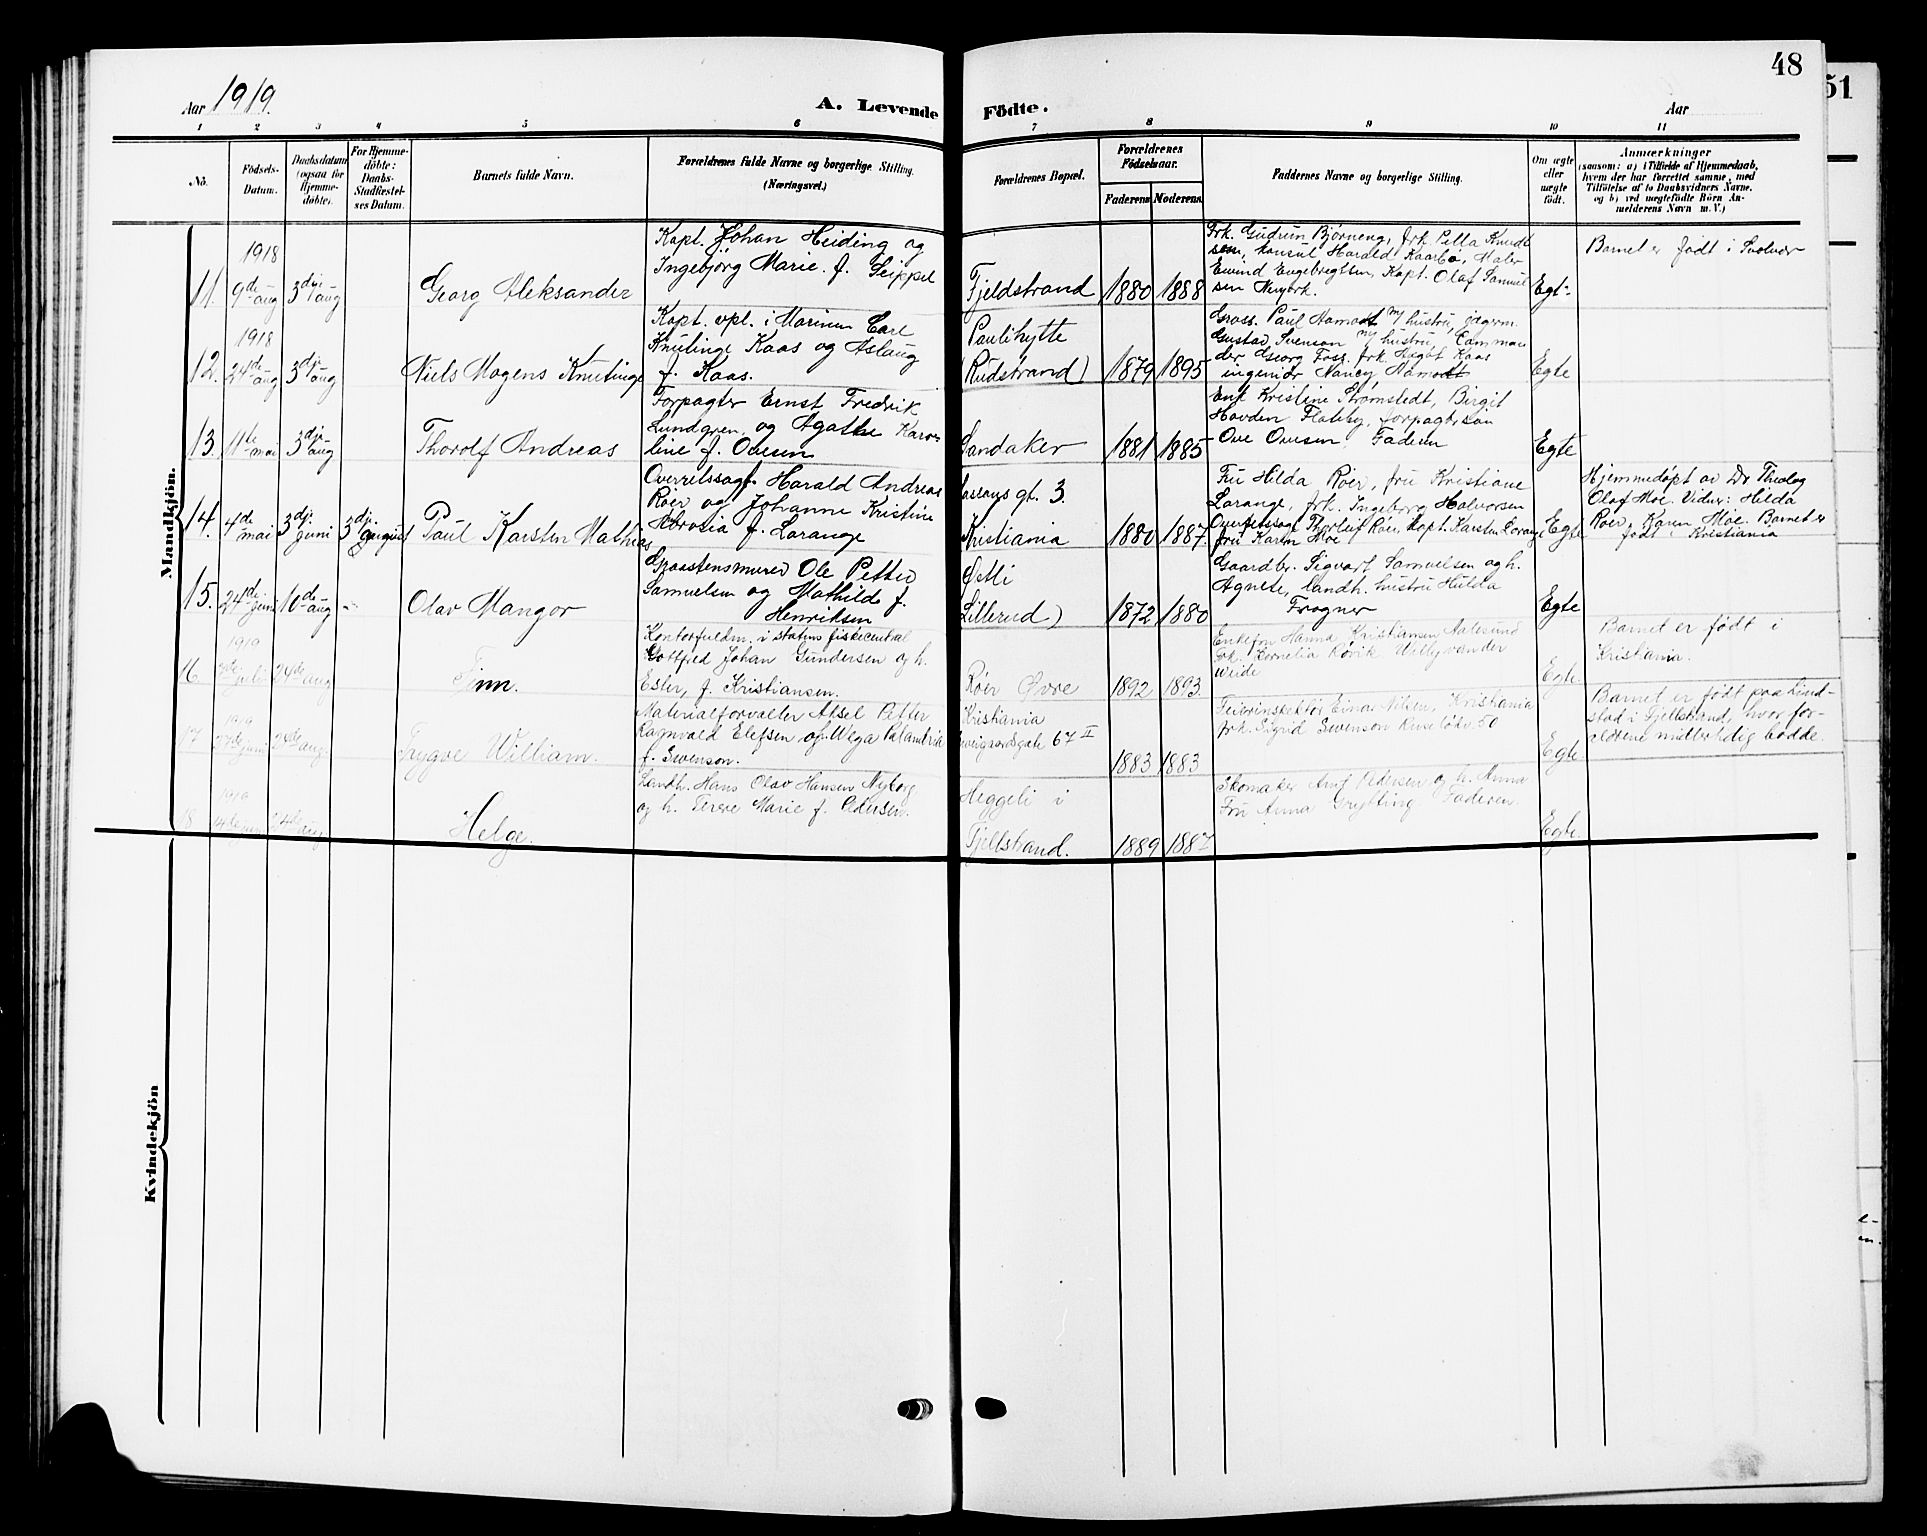 48
51
Aar 1919.
A. Levende
Födte.
Aar
1 2 3 4 5 6 7 8 9 10 11
No.
Födsels-
Datum.
Daabsdatum
(ogsaa for
Hjemme-
döbte).
For Hjemme-
döbte:
Daabs-
Stadfæstel-
ses Datum.
Barnets fulde Navn.
Forældrenes fulde Navne og borgerlige Stilling.
(Næringsvei.)
Forældrenes Bopæl.
Forældrenes
Födselsaar.
Faderens
Moderens
Faddernes Navne og borgerlige Stilling.
Om ægte
eller
uægte
födt.
Anmærkninger
(saasom: a) i Tilfælde af Hjemmedaab,
hvem der har forrettet samme, med
Tilföielse af to Daabsvidners Navne.
og b) ved uægtefödte Börn An-
melderens Navn m. V.)
Mandkjön.
11.
1918
9de aug
3dje aug
Georg Aleksander
Kapt. Johan Heiding og
Ingebjørg Marie. f. Seippel
Fjeldstrand
1880
1888
Frk. Gudrun Bjørneng, frk. Petra Knudt
sen, konsul Harald Kaarbø, Maler
Eivind Engebregtsen, Kapt. Olaf Samuel
sen Newyork.
Egte
Barnet er født i Svolvær
12.
1918
24de aug
3dje aug
Niels Mogens Knutinge
Kapt. vpl. i Marinen Carl
Knutinge Kaas og Aslaug
f. Kaas.
Paulihytte
(Rudstrand)
1879
1895
Gross. Paul Hamodt m/ hustru, jægerm.
Gustav Svenson m/ hustru, Comman
der Georg Foss. frk. Aagot Kaas
ingeniør Nancy Hamodt
Egte
13.
11te mai
3dje aug
Thorolf Andreas
Forpagter Ernst Fredrik
Lundgren og Agathe Karo
line f. Ovesen
Sandaker
1881
1885
Enk Kristine Strømstedt, Birgit
Hovden Flateby, forpagt. søn
Ove Ovesen Faderen
Egte
14.
4de mai
3dje juni
3dje august
Paul Karsten Mathias
Overretssagf. Harald Andreas
Røer og Johanne Kristine
Abrosia f. Lorange
gt. 3.
Kristiania
1880
1887.
Fru Hilda Røer, fru Kristiane
Lorange, frk. Ingeborg Halvorsen
Overretssagf. Thorleif Røer, Kapt. Karsten Lorange
fru Karen Moe
Egte
Hjemmedøpt av Dr Theolog
Olaf Moe. Vidner: Hilda
Røer, Karen Moe. Barnet er
født i Kristiania
15.
24de juni
10de aug
Olav Mangor
Graastensmurer Ole Petter
Samuelsen og Mathilde f.
Henriksen
Østli
Lillerud)
1872
1880
Gaardbr. Sigvart Samuelsen og h.
Agnete, landh. hustru Hulda
Frogner
Egte
16
1919
juli
24de aug
Finn.
Kontorfuldm. i statens fiskecentral
Gottfred Johan Gundersen og h.
Ester, f. Kristiansen.
Røer Øvre
1892
1893
Enkefru Hanna Kristiansen Aalesund
Frk. Kornelia Røvik Willy van der
Weide
Egte
Barnet er født i
Kristiania.
17
1919
27de juni
24de aug.
Trygve William.
Materialforvalter Aksel Petter
Ragnvald Elefsen og Wega
f. Svenson.
Kristiania
67 II
1883
1883
Feierinspektør Einar Nilsen, Kristiania
frk. Sigrid Svenson Ruseløkv 50
Egte
Barnet er født paa Lind-
stad i Fjellstrand, hvor for-
ældrene midlertidig bodde.
18
1919
14de juni
24de aug
Helge.
Landh. Hans Olav Hansen Nyborg
og h. Terese Marie f. Pedersen.
Heggeli i
Fjellstrand.
1889
1887
Skomaker Arnt Pedersen og h. Anna
Fru Anna Grytting Faderen.
Egte
Kvindekjön